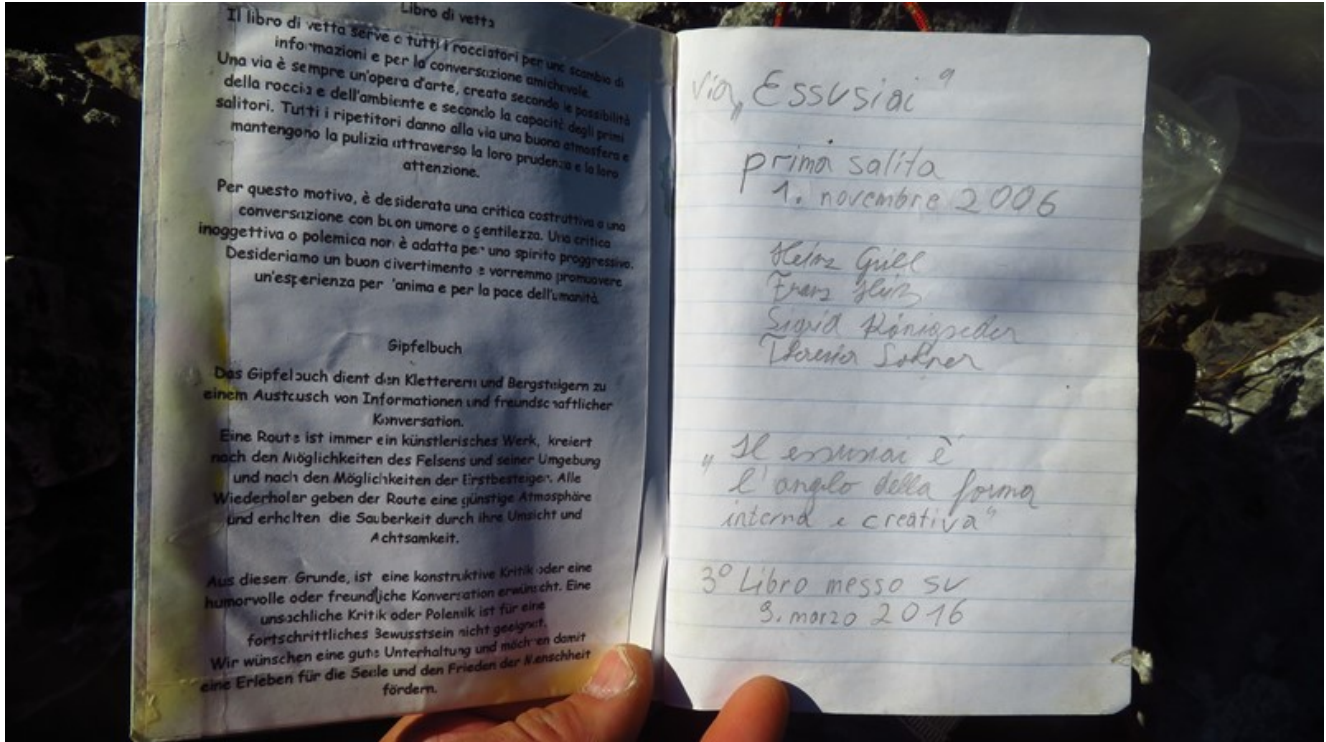 Libro di vetta
Il libro di vetta serve a tutti i rocciatori per uno scambio di
informazioni e per la conversazione amichevole.
Una via è sempre un'opera d'arte, creata secondo le possibilità
della roccia e dell'ambiente e secondo la capacità degli primi
salitori. Tutti i ripetitori danno alla via una buona atmosfera e
mantengono la pulizia attraverso la loro prudenza e la loro
attenzione.
Per questo motivo, è desiderata una critica costruttiva o una
conversazione con buon umore o gentilezza. Una critica
inoggettiva o polemica non è adatta per uno spirito proggressivo.
Desideriamo un buon divertimento e vorremmo promuovere
un'esperienza per l'anima e per la pace dell'umanità.
Gipfelbuch
Das Gipfelbuch dient den Kletterern und Bergsteigern zu
einem Austausch von Informationen und freundschaftlicher
Konversation.
Eine Route ist immer ein künstlerisches Werk, kreiert
nach den Möglichkeiten des Felsens und seiner Umgebung
und nach den Möglichkeiten der Erstbesteiger. Alle
Wiederholer geben der Route eine günstige Atmosphäre
und erhalten die Sauberkeit durch ihre Umsicht und
Achtsamkeit.
Aus diesem Grunde, ist eine konstruktive Kritik oder eine
humorvolle oder freundliche Konversation erwünscht. Eine
unsachliche Kritik oder Polemik ist für eine
fortschrittliches Bewusstsein nicht geeignet.
Wir wünschen eine gute Unterhaltung und möchten damit
eine Erleben für die Seele und den Frieden der Menschheit
fördern.
via „Essusiai"
prima salita
1. novembre 2006
Heinz Grill
Franz Heiß
Sigrid Königseder
Theresia Sokner
„Il essusiai è
l'angelo della forma
interna e creativa"
3° Libro messo su
9. marzo 2016